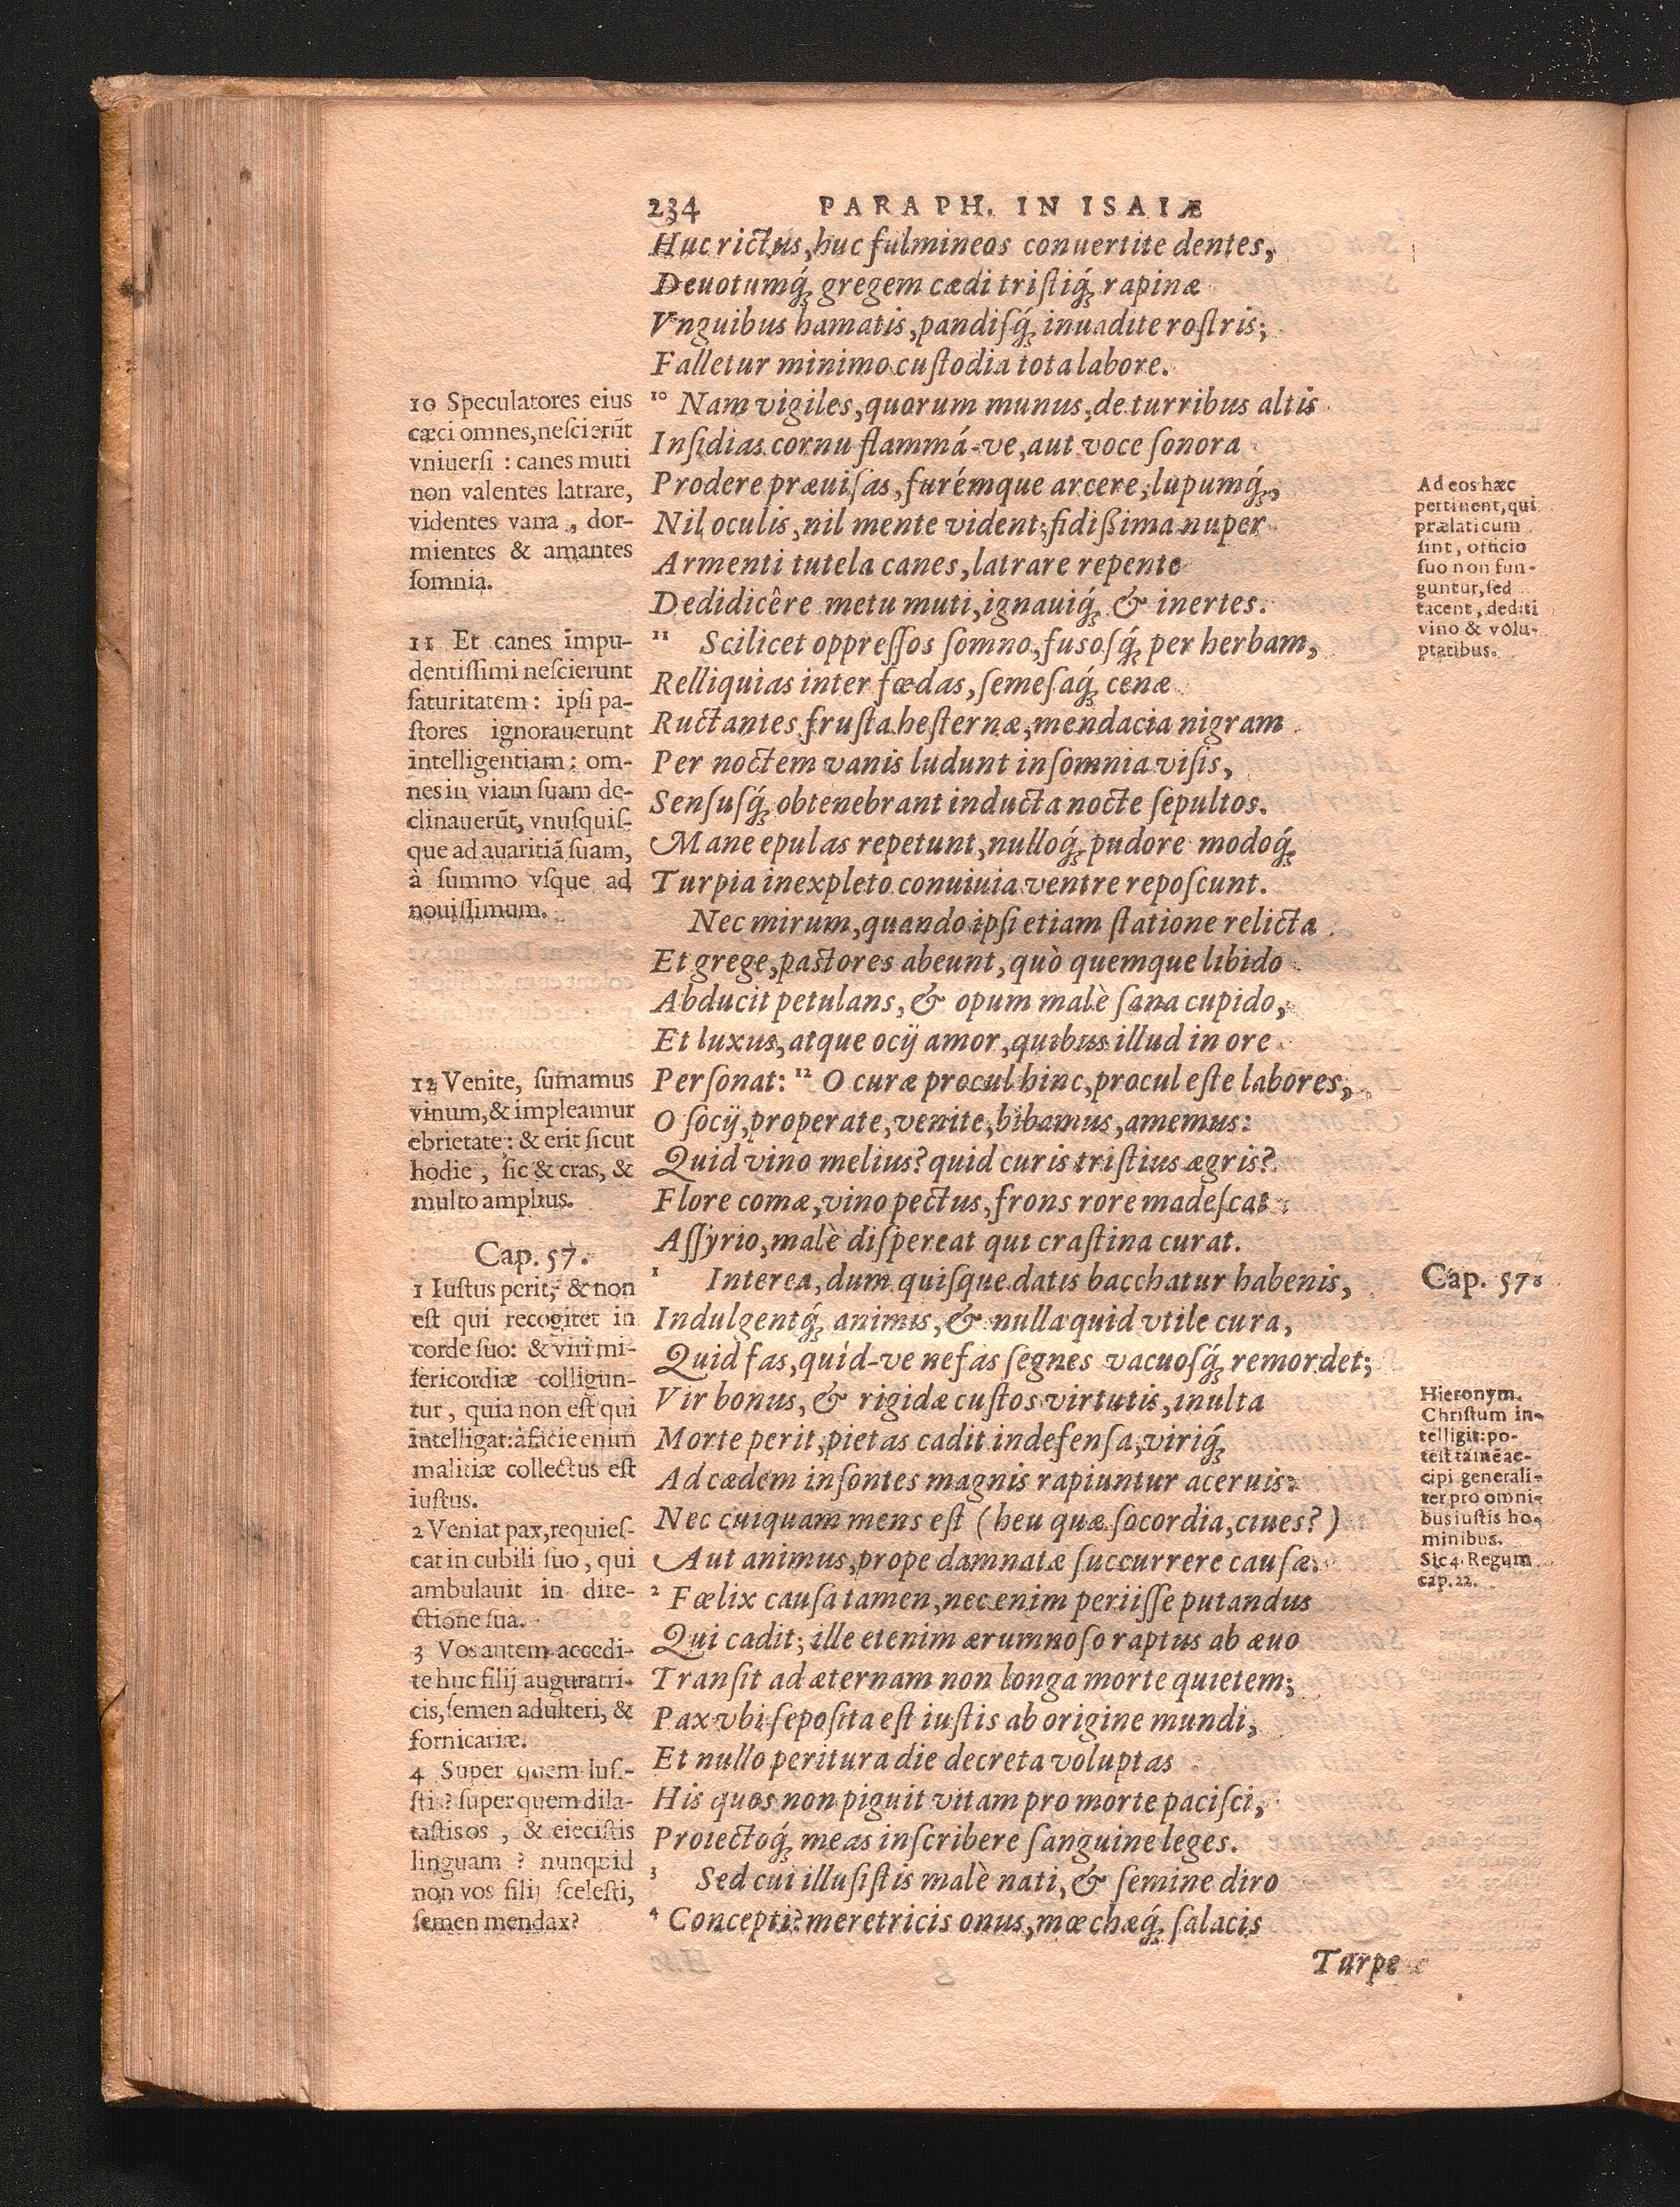 234 PARAPH. IN ISAIÆ
Huc rictus, huc fulmineos conuertite dentes,
Deuotumq́; gregem cædi tristiq́; rapinæ
Vnguibus hamatis, pandisq́; inuadite rostris;
Falletur minimo custodia tota labore.
¹⁰ Nam vigiles, quorum munus, de turribus altis
Insidias cornu flammá-ve, aut voce sonora
Prodere præuisas, furémque arcere, lupumq́;,
Nil oculis, nil mente vident; fidißima nuper
Armenti tutela canes, latrare repente
Dedidicêre metu muti, ignauiq́; & inertes.
¹¹ Scilicet oppressos somno, fusosq́; per herbam,
Relliquias inter fœdas, semesaq́; cenæ
Ructantes frusta hesternæ, mendacia nigram
Per noctem vanis ludunt insomnia visis,
Sensusq́; obtenebrant inducta nocte sepultos.
Mane epulas repetunt, nulloq́; pudore modoq́;
Turpia inexpleto conuiuia ventre reposcunt.
Nec mirum, quando ipsi etiam statione relicta
Et grege, pastores abeunt, quò quemque libido
Abducit petulans, & opum malè sana cupido,
Et luxus, atque ocij amor, quibus illud in ore
Personat: ¹² O curæ procul hinc, procul este labores,
O socij, properate, venite, bibamus, amemus:
Quid vino melius? quid curis tristius ægris?
Flore comæ, vino pectus, frons rore madescat
Assyrio, malè dispereat qui crastina curat.
¹ Interea, dum quisque datis bacchatur habenis,
Indulgentq́; animis, & nulla quid vtile cura,
Quid fas, quid-ve nefas segnes vacuosq́; remordet;
Vir bonus, & rigidæ custos virtutis, inulta
Morte perit, pietas cadit indefensa, viriq́;
Ad cædem insontes magnis rapiuntur aceruis:
Nec cuiquam mens est (heu quæ socordia, ciues?)
Aut animus, prope damnatæ succurrere causæ.
² Fœlix causa tamen, nec enim periisse putandus
Qui cadit; ille etenim ærumnoso raptus ab æuo
Transit ad æternam non longa morte quietem;
Pax vbi seposita est iustis ab origine mundi,
Et nullo peritura die decreta voluptas
His quos non piguit vitam pro morte pacisci,
Proiectoq́; meas inscribere sanguine leges.
³ Sed cui illusistis malè nati, & semine diro
⁴ Concepti? meretricis onus, mœchæq́; salacis
Turpe
10 Speculatores eius
cæci omnes, nescierūt
vniuersi : canes muti
non valentes latrare,
videntes vana, dor-
mientes & amantes
somnia.
11 Et canes impu-
dentissimi nescierunt
saturitatem : ipsi pa-
stores ignorauerunt
intelligentiam : om-
nes in viam suam de-
clinauerūt, vnusquis-
que ad auaritiā suam,
à summo vsque ad
nouissimum.
12 Venite, sumamus
vinum, & impleamur
ebrietate : & erit sicut
hodie, sic & cras, &
multo amplius.
Cap. 57.
1 Iustus perit, & non
est qui recogitet in
corde suo: & viri mi-
sericordiæ colligun-
tur, quia non est qui
intelligat: à facie enim
malitiæ collectus est
iustus.
2 Veniat pax, requies-
cat in cubili suo, qui
ambulauit in dire-
ctione sua.
3 Vos autem accedi-
te huc filij auguratri-
cis, semen adulteri, &
fornicariæ.
4 Super quem lusi-
stis? super quem dila-
tastis os, & eiecistis
linguam ? nunquid
non vos filij scelesti,
semen mendax?
Ad eos hæc
pertinent, qui
prælati cum
sint, officio
suo non fun-
guntur, sed
tacent, dediti
vino & volu-
ptatibus.
Cap. 57.
Hieronym.
Christum in-
telligit: po-
test tamē ac-
cipi generali-
ter pro omni-
bus iustis ho-
minibus.
Sic 4. Regum
cap. 22.